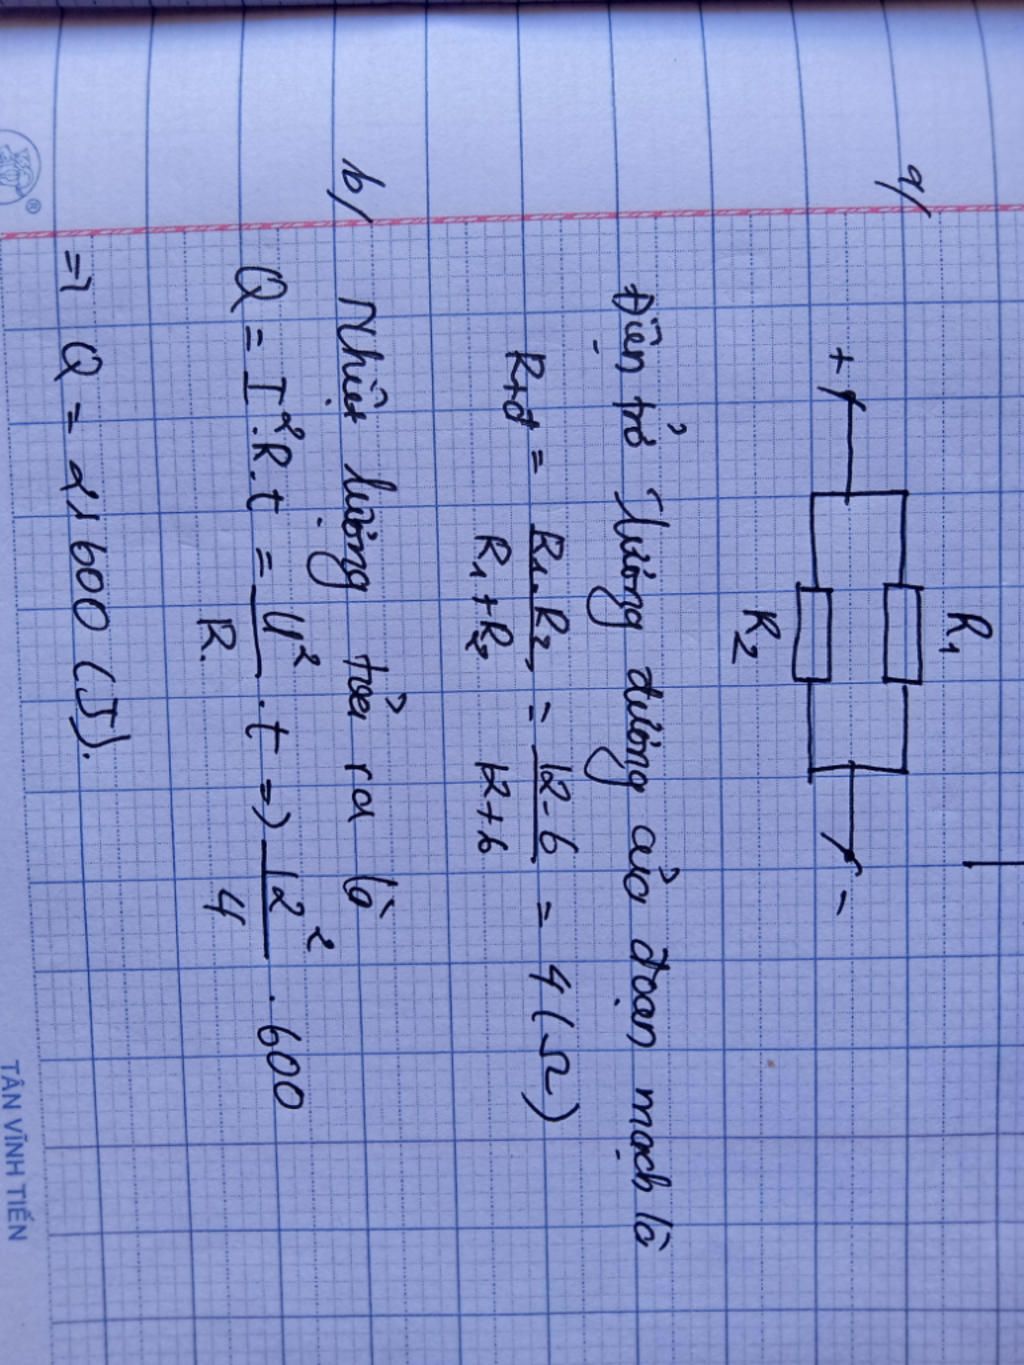 a/
R1
+ -
R2
Điện trở tương đương của đoạn mạch là
Rtđ = R1.R2 / R1+R2 = 12.6 / 12+6 = 4 (Ω)
b/ Nhiệt lượng toả ra là
Q = I².R.t = U²/R . t => 12²/4 . 600
=> Q = 21600 (J).
TÂN VĨNH TIẾN
®